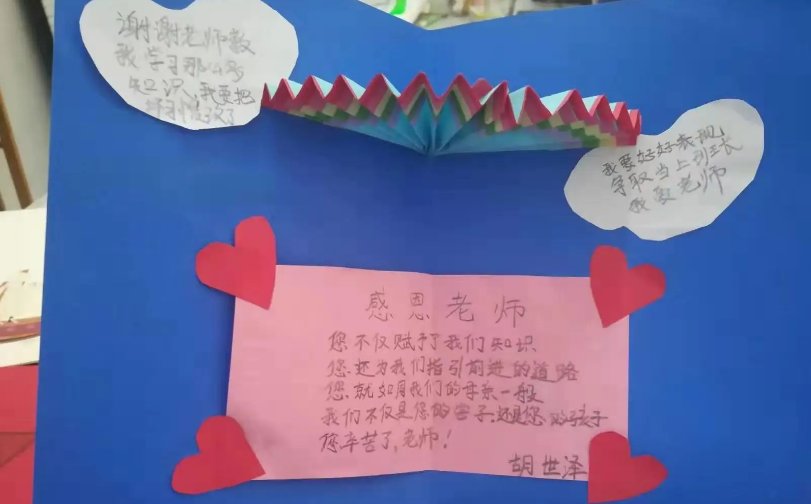 谢谢老师教
我学习那么多
知识,我要把
坏习惯改了
我要好好表现
争取当上列三长
我爱老师
感恩老师
您不仅赋予了我们知识
您还为我们指引前进的道路
您就如同我们的母亲一般
我们不仅是您的学子,还是您的孩子
您辛苦了,老师!
胡世泽